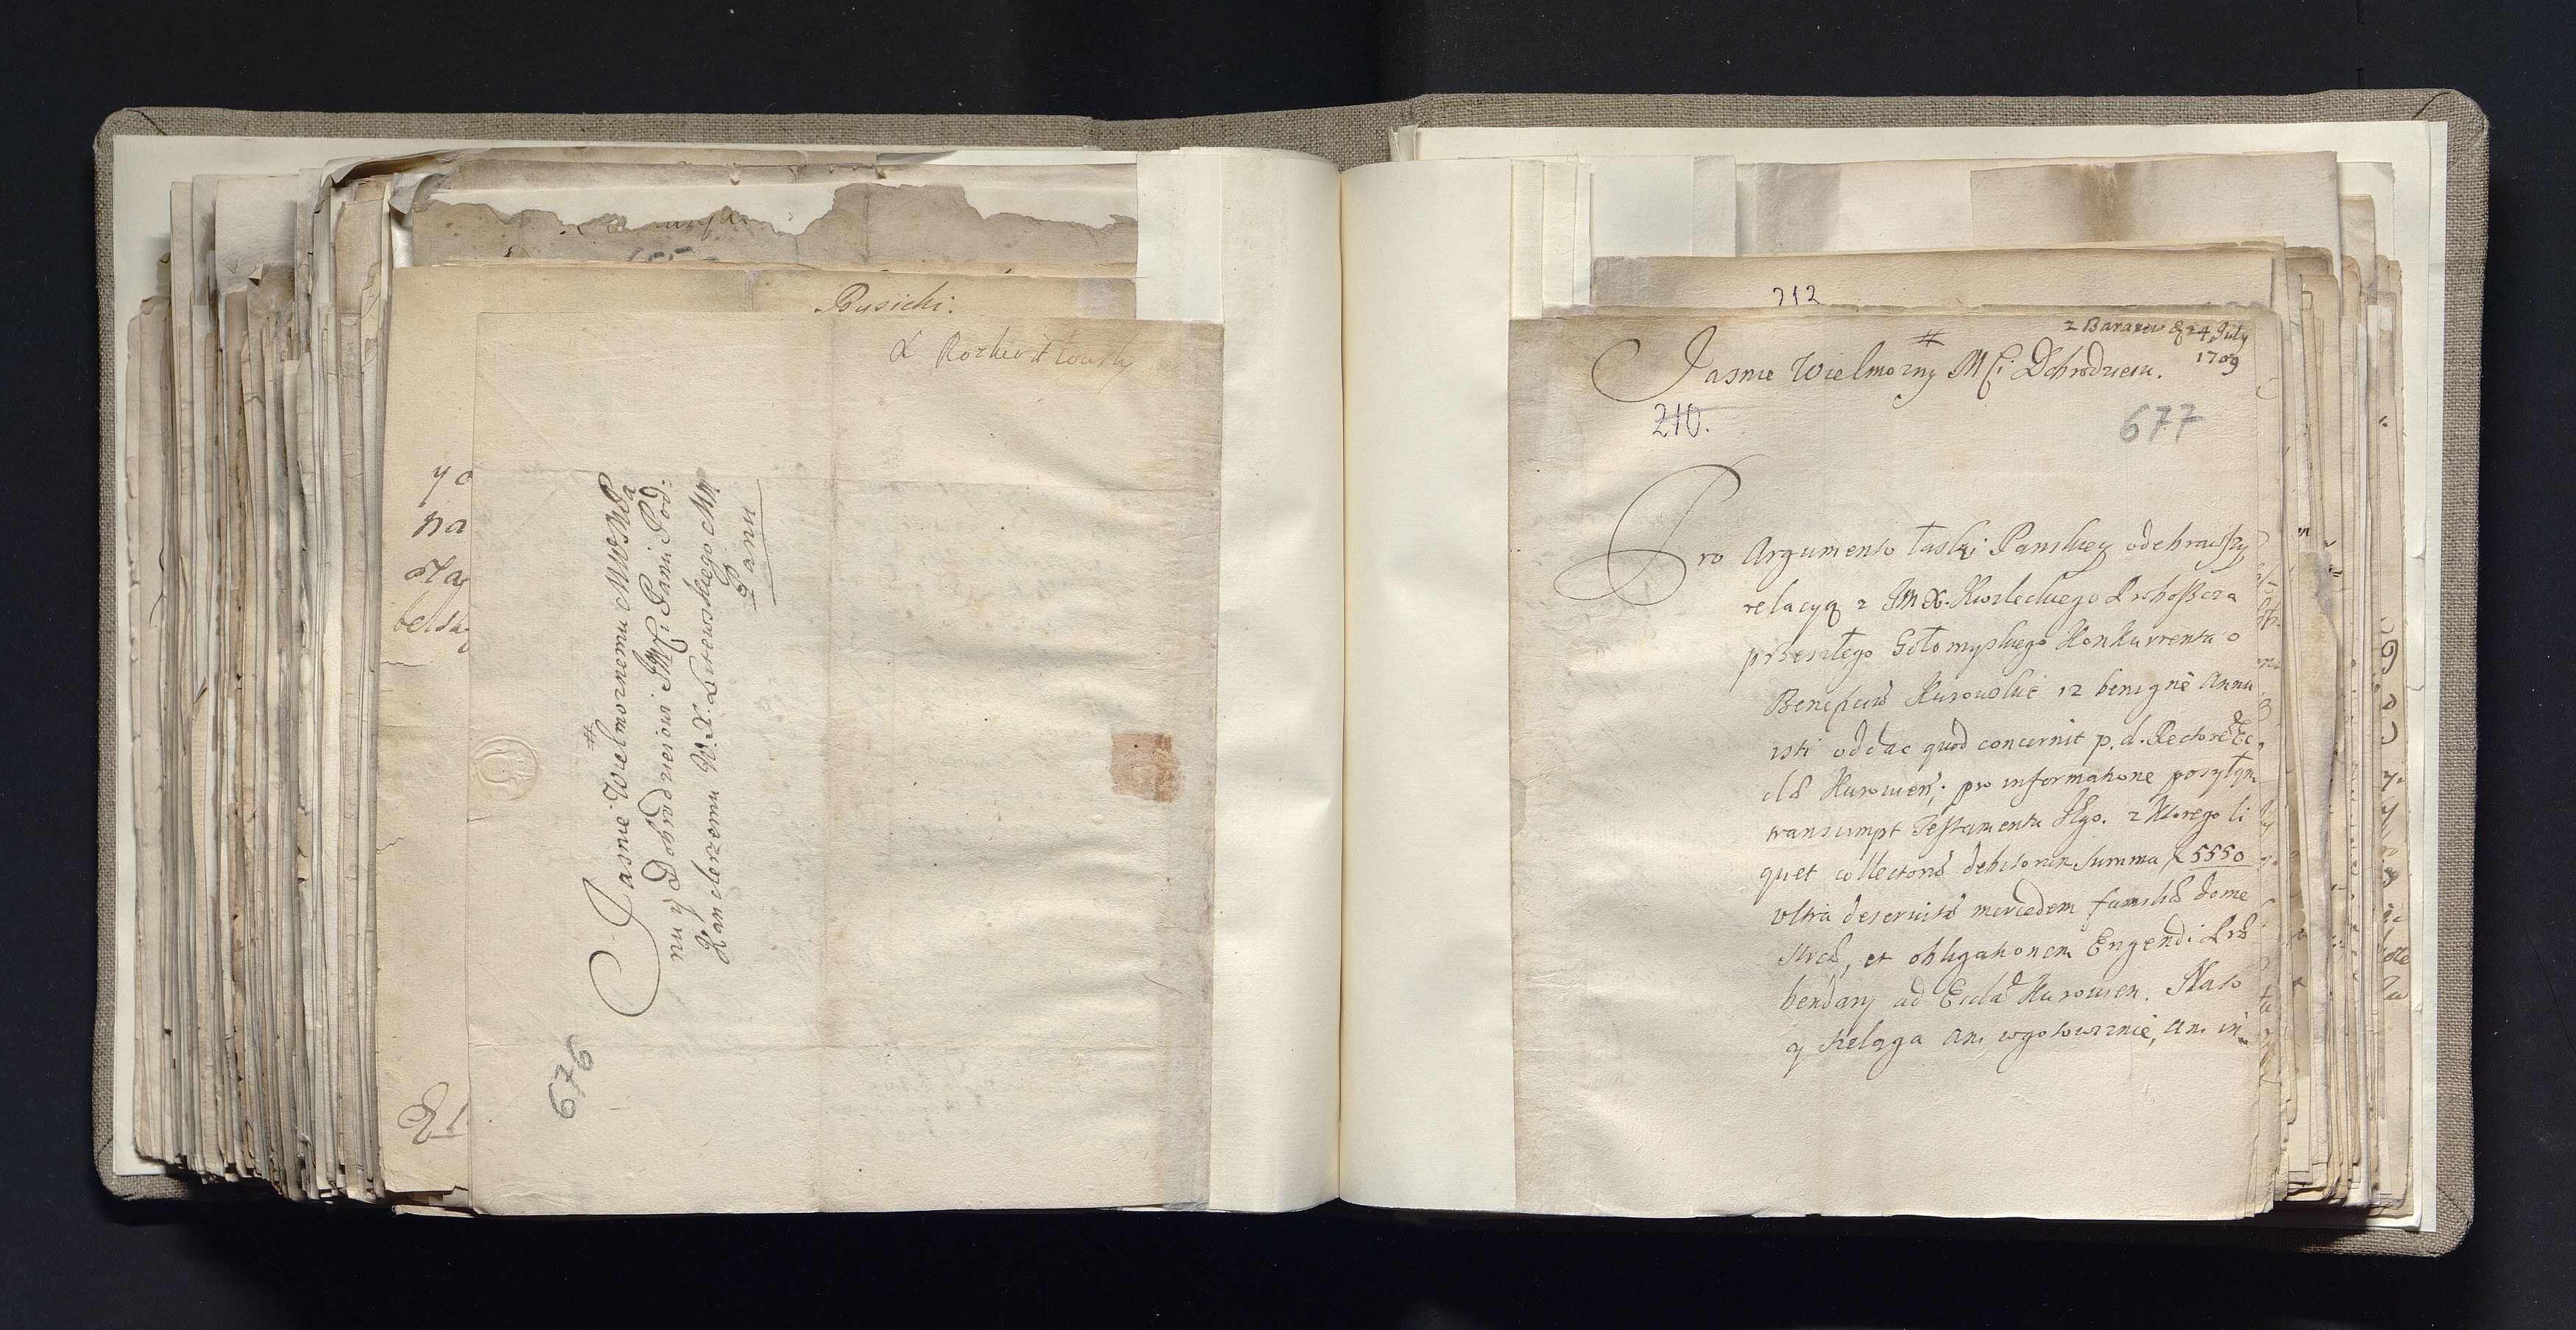 Busicki:
676
#
Jasnie Wielmoznemu MMWMPa
nu y Dobrodzieiowi JMSCi Panu Pod:
Kanclerzemu W. X. Litewskiego MM
Panu
y o
na
212
z Baranow d 24 July
1709
#
Jasnie Wielmozny MSCi Dobrodzieiu.
210.
677
Pro Argumento łaski Panskiey odebrawszy
relacyą z JMX. Proboszcza
przeszłego Gołomyskiego Konkurrenta o
Beneficiū Kurowskie iz benignè Annu
isti oddac quod concernit p. d. Rectorē Ec,
clae Kurowien; pro informatione posyłam
transumpt Testamentu Ige. z ktorego li
quet collectorū debitorum summa f. 5550
ultra deservitā mercedem familiae dome
sticae, et obligationem Erigendi Prae
bendarij ad Eccla Kurowien. Na to
y szeląga ani wgotowiznie, ani in